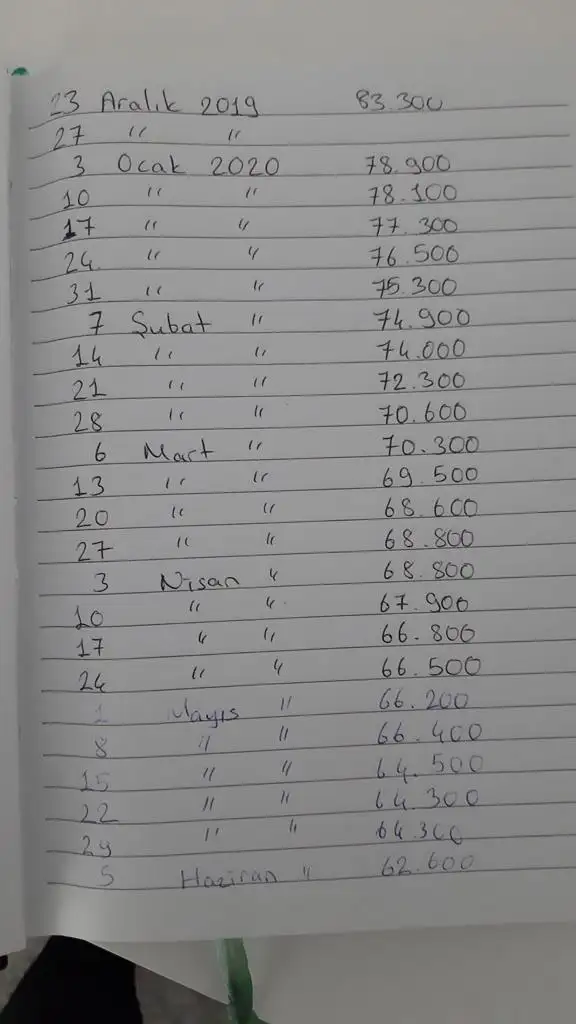 23 Aralık 2019 83.300
27 " "
3 Ocak 2020 78.900
10 " " 78.100
17 " " 77.300
24 " " 76.500
31 " " 75.300
7 Şubat " 74.900
14 " " 74.000
21 " " 72.300
28 " " 70.600
6 Mart " 70.300
13 " " 69.500
20 " " 68.600
27 " " 68.800
3 Nisan " 68.800
10 " " 67.900
17 " " 66.800
24 " " 66.500
1 Mayıs " 66.200
8 " " 66.400
15 " " 64.500
22 " " 64.300
29 " " 64.300
5 Haziran " 62.600